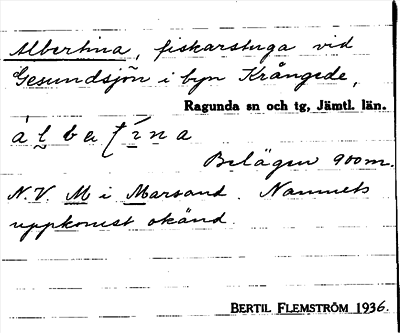 Albertina, fiskarstuga vid
Gesundsjön i byn Krångede,
Ragunda sn och tg, Jämtl. län.
Belägen 900 m.
N.V. M i Marsand. Namnets
uppkomst okänd.
BERTIL FLEMSTRÖM 1936.